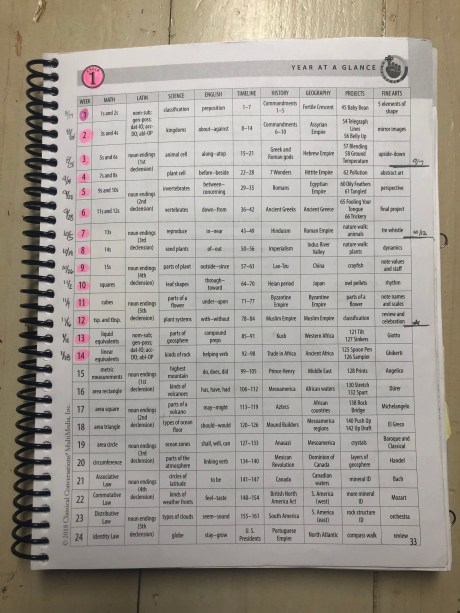 CYCLE
1
YEAR AT A GLANCE
WEEK MATH LATIN SCIENCE ENGLISH TIMELINE HISTORY GEOGRAPHY PROJECTS FINE ARTS
1 1s and 2s noun-sub; gen-poss; dat-IO; acc-DO; abl-OP classification preposition 1–7 Commandments 1–5 Fertile Crescent 45 Baby Bean 5 elements of shape
2 3s and 4s kingdoms about–against 8–14 Commandments 6–10 Assyrian Empire 54 Telegraph Lines 56 Belly Up mirror images
3 5s and 6s noun endings (1st declension) animal cell along–atop 15–21 Greek and Roman gods Hebrew Empire 57 Blending 58 Ground Temperature upside-down
4 7s and 8s plant cell before–beside 22–28 7 Wonders Hittite Empire 62 Pollution abstract art
5 9s and 10s noun endings (2nd declension) invertebrates between–concerning 29–35 Romans Egyptian Empire 60 Oily Feathers 61 Tangled perspective
6 11s and 12s vertebrates down–from 36–42 Ancient Greeks Ancient Greece 65 Fooling Your Tongue 66 Trickery final project
7 13s noun endings (3rd declension) reproduce in–near 43–49 Hinduism Roman Empire nature walk: animals tin whistle
8 14s seed plants of–out 50–56 Imperialism Indus River Valley nature walk: plants dynamics
9 15s noun endings (4th declension) parts of plant outside–since 57–63 Lao-Tzu China crayfish note values and staff
10 squares leaf shapes through–toward 64–70 Heian period Japan owl pellets rhythm
11 cubes noun endings (5th declension) parts of a flower under–upon 71–77 Byzantine Empire Byzantine Empire parts of a flower note names and scales
12 tsp. and tbsp. plant systems with–without 78–84 Muslim Empire Muslim Empire classification review and celebration
13 liquid equivalents noun-sub; gen-poss; dat-IO; acc-DO; abl-OP parts of geosphere compound preps 85–91 Kush Western Africa 121 Tilt 127 Sinkers Giotto
14 linear equivalents kinds of rock helping verb 92–98 Trade in Africa Ancient Africa 125 Spoon Pen 126 Sampler Ghiberti
15 metric measurements noun endings (1st declension) highest mountain do, does, did 99–105 Prince Henry Middle East 128 Prints Angelico
16 area rectangle kinds of volcanoes has, have, had 106–112 Mesoamerica African waters 130 Stretch 132 Spurt Dürer
17 area square noun endings (2nd declension) parts of a volcano may–might 113–119 Aztecs African countries 138 Rock Bridge Michelangelo
18 area triangle types of ocean floor should–would 120–126 Mound Builders Mesoamerica regions 140 Push Up 142 Up Draft El Greco
19 area circle noun endings (3rd declension) ocean zones shall, will, can 127–133 Anasazi Mesoamerica crystals Baroque and Classical
20 circumference parts of the atmosphere linking verb 134–140 Mexican Revolution Dominion of Canada layers of geosphere Handel
21 Associative Law noun endings (4th declension) circles of latitude to be 141–147 Canada Canadian waters mineral ID Bach
22 Commutative Law kinds of weather fronts feel–taste 148–154 British North America Act S. America (west) more mineral ID Mozart
23 Distributive Law noun endings (5th declension) types of clouds seem–sound 155–161 South America S. America (east) rock structure ID orchestra
24 Identity Law globe stay–grow U. S. Presidents Portuguese Empire North Atlantic compass walk review
33